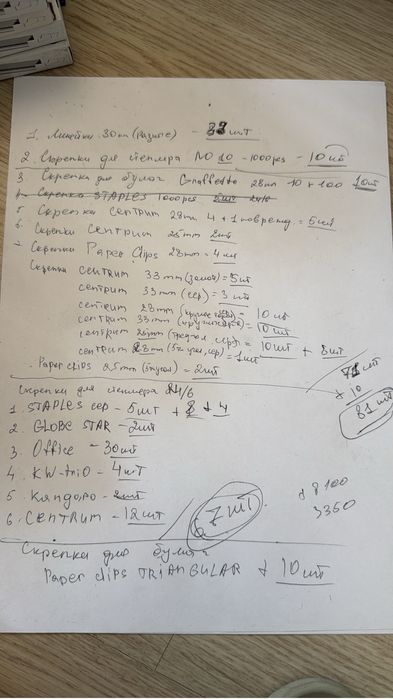 1. Линейки 30 см (разные) - 33 шт
2. Скрепки для степлера №10 - 1000 pcs - 10 шт
3 Скрепка для бумаг Graffetto 28мм 10 x 100 10шт
4. Скрепка STAPLES 1000 pcs
5 Скрепка Centrum 28мм 4 + 1 поврежд = 5шт
6. Скрепки Centrum 25mm 2шт
7 Скрепки Paper Clips 28mm = 4шт
Скрепки centrum 33mm (золот) = 5шт
centrum 33mm (сер) = 3 шт
centrum 28mm = 10 шт
centrum 33mm = 10шт
centrum 25mm = 10 шт + 8шт
centrum 28mm = 1шт
Paper clips 25mm = 2шт
71 шт
+ 10
81 шт
Скрепки для степлера 24/6
1. STAPLES сер - 5шт + 8 + 4
2. GLOBE STAR - 2шт
3. Office - 30шт
4. KW-triO - 4шт
5. Кандоро - 2шт
6. CENTRUM - 12шт
67 шт
8100
3350
Скрепка для бумаг
Paper clips TRIANGULAR + 10шт